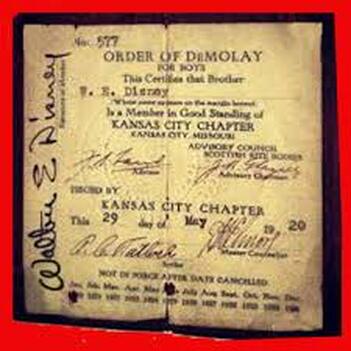 No. 577
ORDER OF DEMOLAY
FOR BOYS
This Certifies that Brother
W. E. Disney
Whose name appears on the margin hereof
Is a Member in Good Standing of
KANSAS CITY CHAPTER
KANSAS CITY, MISSOURI
ADVISORY COUNCIL
SCOTTISH RITE BODIES
Advisor
Advisory Chairman
ISSUED BY
KANSAS CITY CHAPTER
This 29 day of May 19 20
Scribe
Master Councilor
NOT IN FORCE AFTER DATE CANCELLED
Jan. Feb. Mar. Apr. May July Aug Sept. Oct. Nov. Dec.
Walter E Disney
Signature of Member